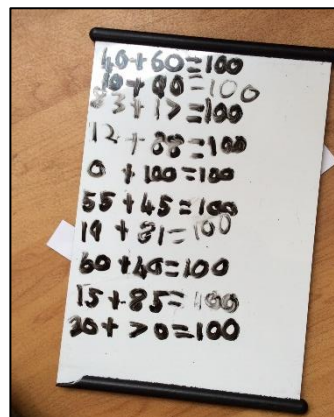 40+60=100
10+90=100
83+17=100
12+88=100
0+100=100
55+45=100
19+81=100
60+40=100
15+85=100
30+70=100